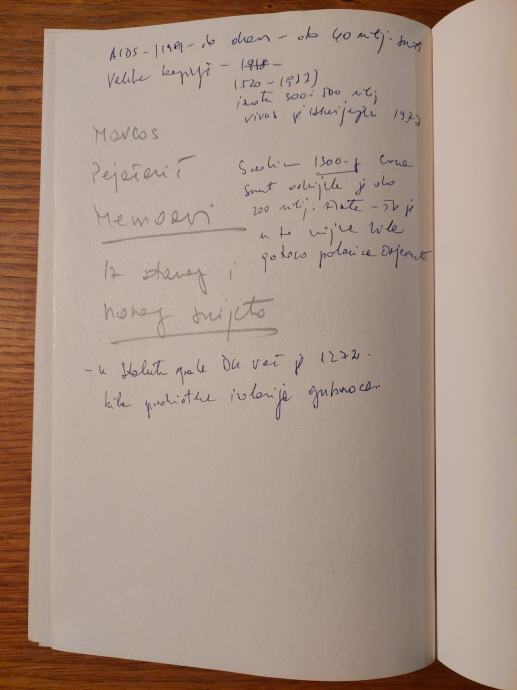 AIDS - 1981 - do danas - oko 40 mlj. smrti
Velike boginje -
(520 - 1977)
između 300 i 500 mlj
virus je istrijebljen 1977
Marcos
Pejačević
Memoari
Iz starog i
novog svijeta
Sredinom 1300-ih crna
smrt odnijela je oko
200 mlj. - što je
u to vrijeme bila
gotovo polovica svjetske
- u Statutu grada Du već je 1272.
bila predviđena izolacija gubavaca